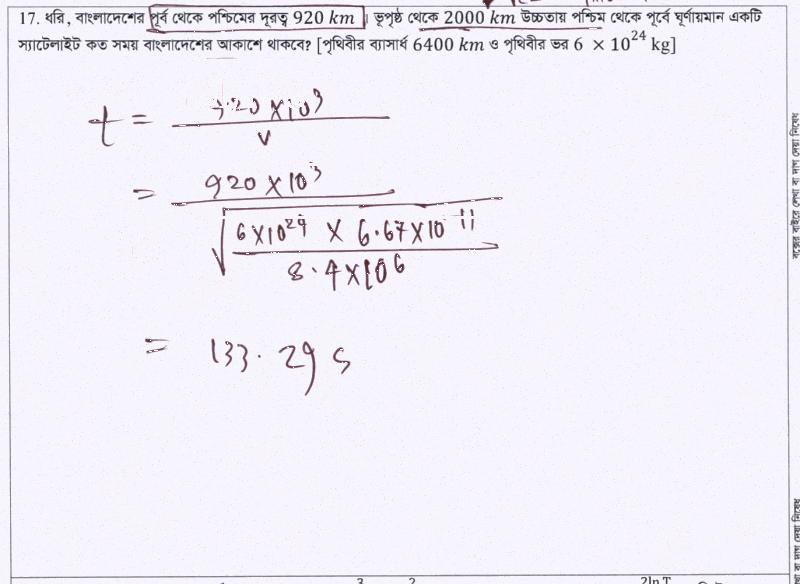 17. ধরি, বাংলাদেশের পূর্ব থেকে পশ্চিমের দূরত্ব 920 km। ভূপৃষ্ঠ থেকে 2000 km উচ্চতায় পশ্চিম থেকে পূর্বে ঘূর্ণায়মান একটি
স্যাটেলাইট কত সময় বাংলাদেশের আকাশে থাকবে? [পৃথিবীর ব্যাসার্ধ 6400 km ও পৃথিবীর ভর 6 × 10^24 kg]
t = 920×10^3 / v
= 920×10^3 / √(6×10^24 × 6.67×10^-11 / 8.4×10^6)
= 133.29 s
বক্সের বাইরে লেখা বা দাগ দেয়া নিষেধ
বা দাগ দেয়া নিষেধ